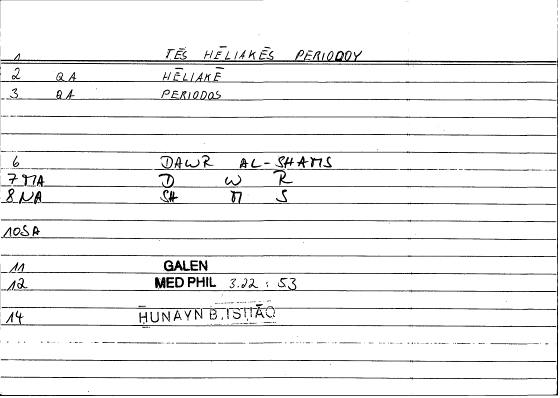 1 TĒS HĒLIAKĒS PERIODOY
2 QA HĒLIAKĒ
3 QA PERIODOS
6 DAWR AL-SHAMS
7 MA D W R
8 NA SH M S
10 SA
11 GALEN
12 MED PHIL 3.22 : 53
14 HUNAYN B. ISHĀQ